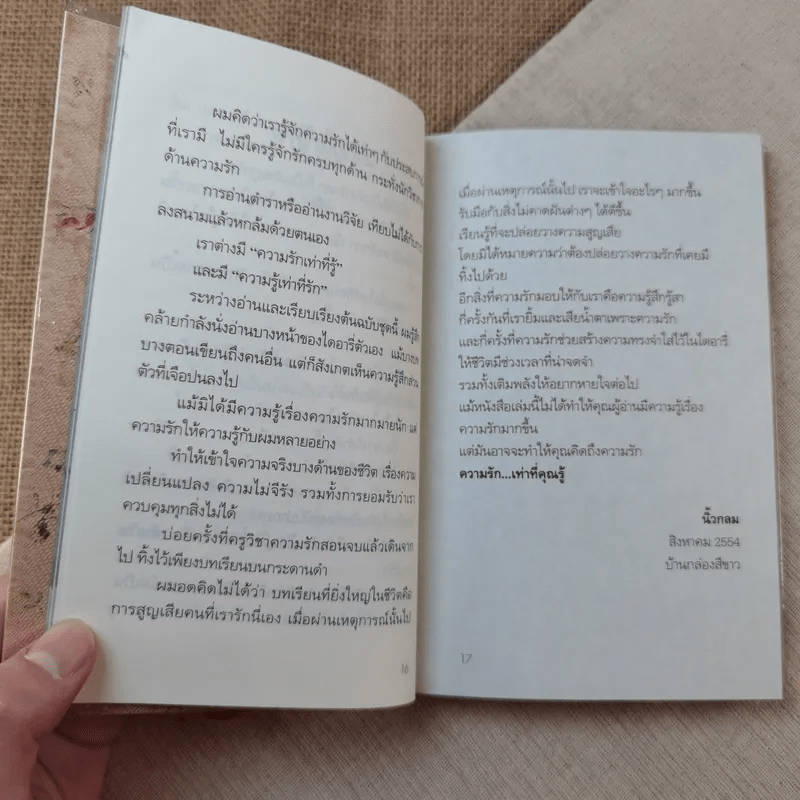 ผมคิดว่าเรารู้จักความรักได้เท่าๆ กับประสบการณ์
ที่เรามี ไม่มีใครรู้จักรักครบทุกด้าน กระทั่งนักวิชาการ
ด้านความรัก
การอ่านตำราหรืออ่านงานวิจัย เทียบไม่ได้กับการ
ลงสนามแล้วหกล้มด้วยตนเอง
เราต่างมี “ความรักเท่าที่รู้”
และมี “ความรู้เท่าที่รัก”
ระหว่างอ่านและเรียบเรียงต้นฉบับชุดนี้ ผมรู้สึก
คล้ายกำลังนั่งอ่านบางหน้าของไดอารี่ตัวเอง แม้บางบท
บางตอนเขียนถึงคนอื่น แต่ก็สังเกตเห็นความรู้สึกส่วน
ตัวที่เจือปนลงไป
แม้มิได้มีความรู้เรื่องความรักมากมายนัก แต่
ความรักให้ความรู้กับผมหลายอย่าง
ทำให้เข้าใจความจริงบางด้านของชีวิต เรื่องความ
เปลี่ยนแปลง ความไม่จีรัง รวมทั้งการยอมรับว่าเรา
ควบคุมทุกสิ่งไม่ได้
บ่อยครั้งที่ครูวิชาความรักสอนจบแล้วเดินจาก
ไป ทิ้งไว้เพียงบทเรียนบนกระดานดำ
ผมอดคิดไม่ได้ว่า บทเรียนที่ยิ่งใหญ่ในชีวิตคือ
การสูญเสียคนที่เรารักนี่เอง เมื่อผ่านเหตุการณ์นั้นไป
16
เมื่อผ่านเหตุการณ์นั้นไป เราจะเข้าใจอะไรๆ มากขึ้น
รับมือกับสิ่งไม่คาดฝันต่างๆ ได้ดีขึ้น
เรียนรู้ที่จะปล่อยวางความสูญเสีย
โดยมิได้หมายความว่าต้องปล่อยวางความรักที่เคยมี
ทิ้งไปด้วย
อีกสิ่งที่ความรักมอบให้กับเราคือความรู้สึกรู้สา
กี่ครั้งกันที่เรายิ้มและเสียน้ำตาเพราะความรัก
และกี่ครั้งที่ความรักช่วยสร้างความทรงจำใส่ไว้ในไดอารี่
ให้ชีวิตมีช่วงเวลาที่น่าจดจำ
รวมทั้งเติมพลังให้อยากหายใจต่อไป
แม้หนังสือเล่มนี้ไม่ได้ทำให้คุณผู้อ่านมีความรู้เรื่อง
ความรักมากขึ้น
แต่มันอาจจะทำให้คุณคิดถึงความรัก
ความรัก...เท่าที่คุณรู้
นิ้วกลม
สิงหาคม 2554
บ้านกล่องสีขาว
17